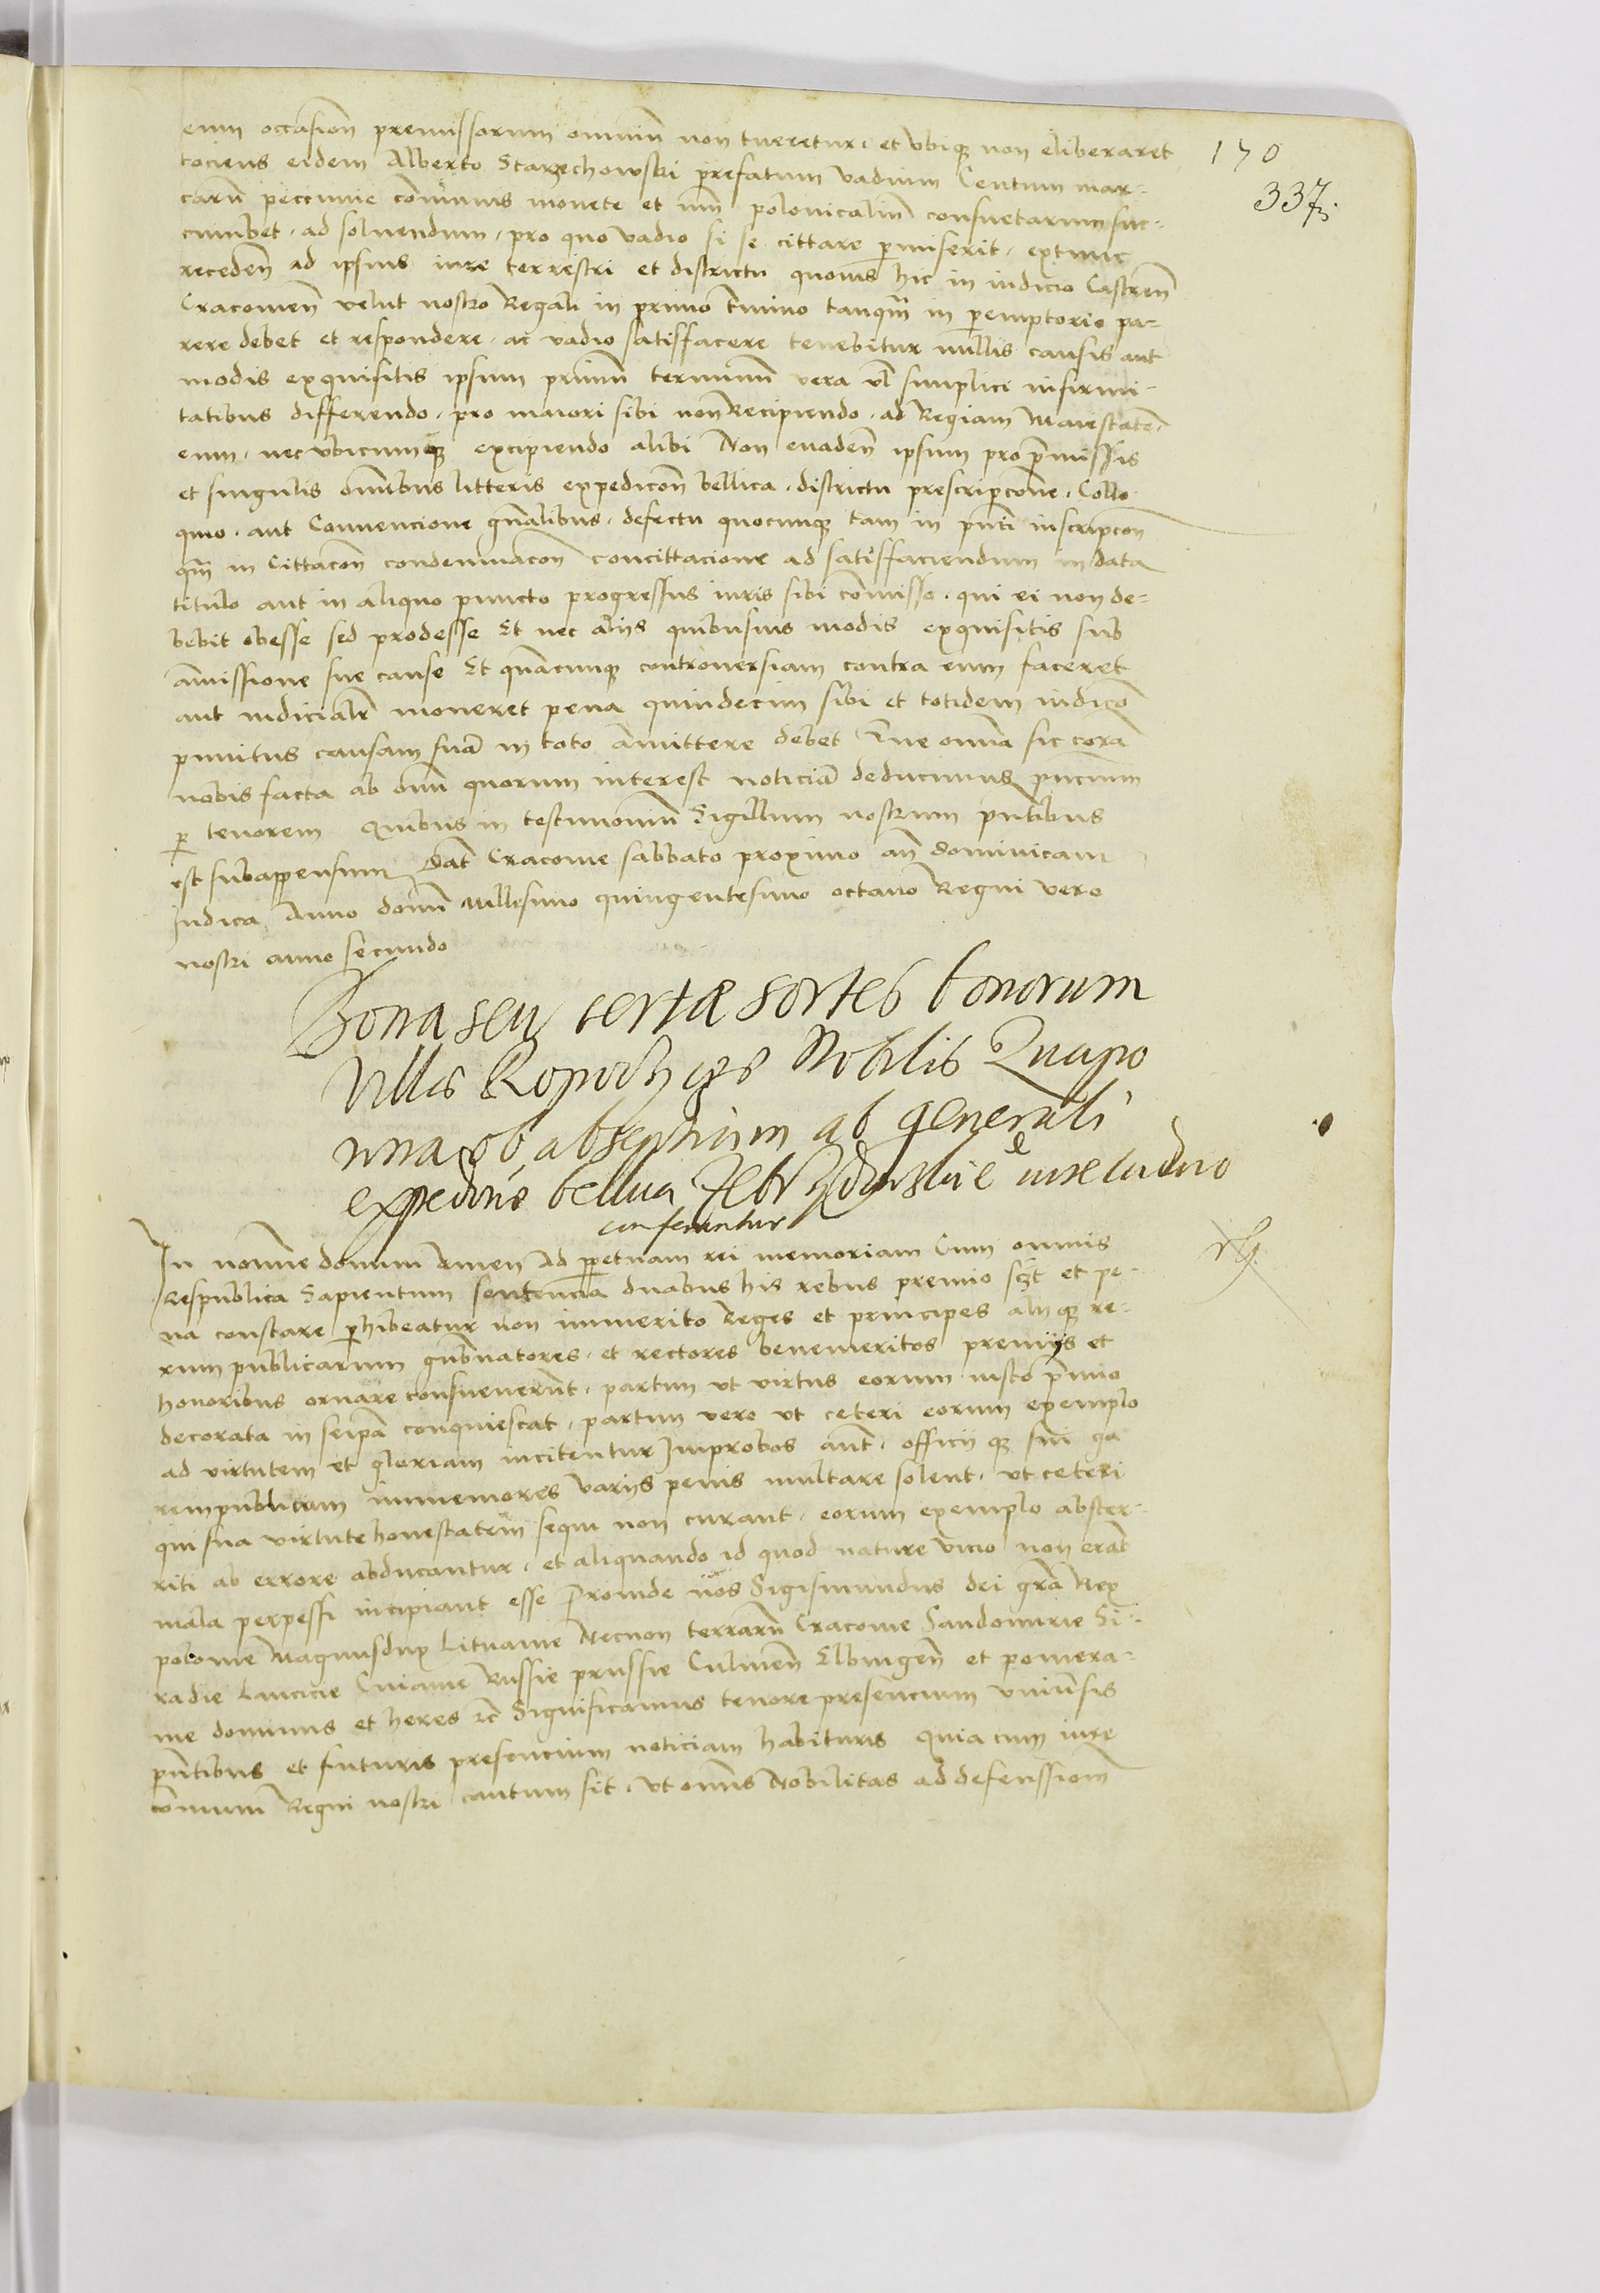 eum occasion premissorum omnium non tueretur. et vbiqz non eliberaret
170
tociens eidem Alberto Starzechowski prefatum vadium Centum mar-
337
carum peccunie communis monete et num polonicalium consuetarum suc-
cumbet. ad soluendum. pro quo vadio si se cittare permiserit. extunc
receden ad ipsius iure terrestri et districtu quouis hic in iudicio Castren
Cracouien velut nostro Regali in primo termino tanquam in peremptorio pa-
rere debet et respondere. ac vadio satisfacere tenebitur nullis causis aut
modis exquisitis ipsum primum terminum vera vel simplici infirmi-
tatibus differendo. pro maiori sibi non Recipiendo. ad Regiam Maiestatem
eum. nec vbicumqz excipiendo alibi Non euaden ipsum pro premissis
et singulis omnibus litteris expedicion bellica. districtu prescripcione. Collo
quio. aut Conuencione generalibus. defectu quocunqz tam in presenti inscripcion
quam in Cittacion condemnacion concittacione ad satisfaciendum in data
titulo aut in aliquo puncto progressus iuris sibi commisso. qui ei non de-
bebit obesse sed prodesse Et nec alijs quibusuis modis exquisitis sub
amissione sue cause Et quamcunqz controuersiam contra eum faceret
aut iudicialem moneret pena quindecim sibi et totidem iudicio
punitus causam suam in toto amittere debet Que omnia sic coram
nobis facta ab omnium quorum interest noticiam deducimus presencium
per tenorem Quibus in testimonium Sigillum nostrum presentibus
est subappensum Dat Cracouie sabbato proximo ante dominicam
Iudica Anno domini Millesimo quingentesimo octauo Regni vero
nostri anno secundo
Bona seu certæ sortes bonorum
Villis Nobilis
ob absentium ab generali
expeditione bellica iure caduco
conferuntur
In nomine domini Amen Ad perpetuam rei memoriam Cum omnis
Respublica Sapientum sentencia duabus his rebus premio scilicet et pe-
na constare perhibeatur non immerito Reges et principes alij qz re-
rum publicarum gubernatores. et rectores benemeritos premijs et
honoribus ornare consueuerunt. partim vt virtus eorum iusto premio
decorata in seipsa conquiescat. partim vero vt ceteri eorum exemplo
ad virtutem et gloriam incitentur Improbos autem. officij qz sui erga
rempublicam immemores varijs penis multare solent. vt ceteri
qui sua virtute honestatem sequi non curant. eorum exemplo abster-
riti ab errore abducantur. et aliquando id quod nature vicio non erant
mala perpessi incipiant esse Proinde nos Sigismundus dei gratia Rex
polonie Magnusdux Lituanie Necnon terrarum Cracouie Sandomirie Si-
radie Lancicie Cuiauie Russie prussie Culmen Elbingen et pomera-
nie dominus et heres etc Significamus tenore presencium vniuersis
presentibus et futuris presencium noticiam habituris Quia cum iure
communi Regni nostri cautum sit. vt omnis Nobilitas ad defenssionem